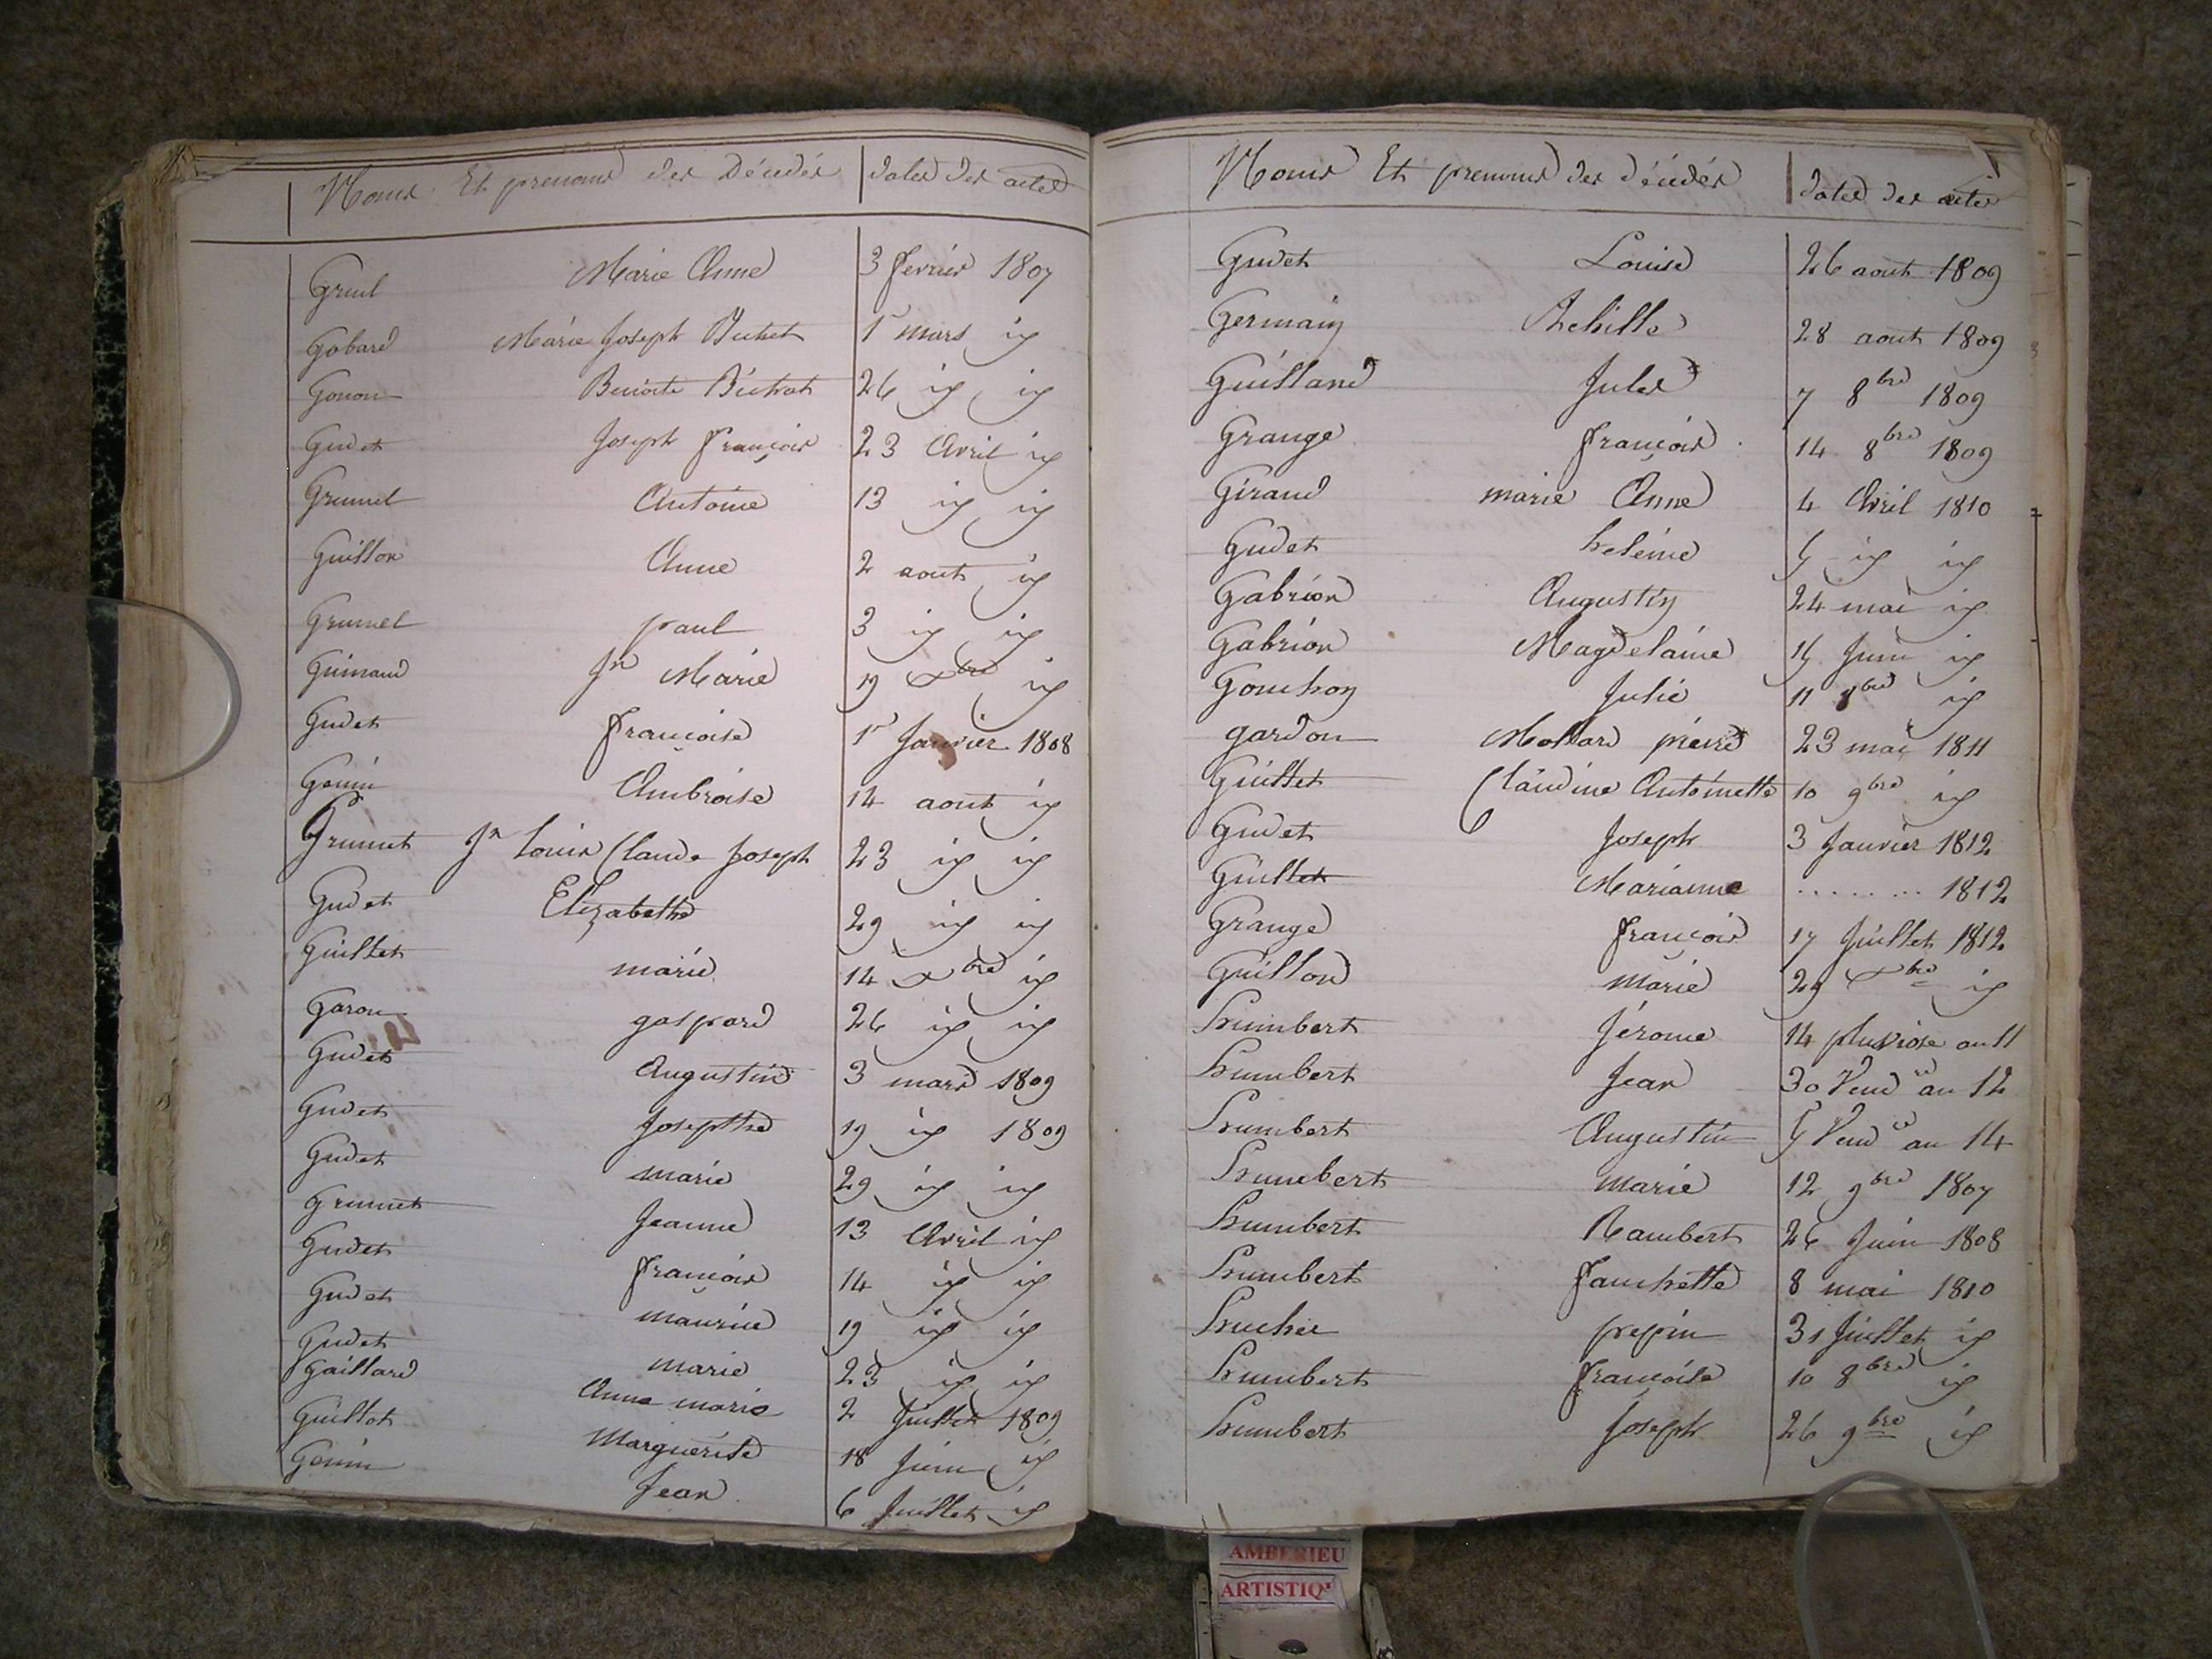 Noms Et prenoms des Décédés dates des actes
Gruel Marie Anne 3 fevrier 1807
Gobard Marie Joseph 1r mars id
Gonon Benoite 26 id id
Gudet Joseph François 23 Avril id
Grumel Antoine 13 id id
Guillon Anne 2 aout id
Grumel paul 3 id id
Guinand Jn Marie 19 xbre id
Gudet françoise 1r Janvier 1808
Genin Ambroise 14 aout id
Grumet Jn Louis Claude Joseph 23 id id
Gudet Elizabethe 29 id id
Guillet marie 14 xbre id
Garon gaspard 26 id id
Gudet Augustin 3 mars 1809
Gudet Josephte 19 id 1809
Gudet marie 29 id id
grumet Jeanne 13 Avril id
Gudet françois 14 id id
Gudet maurice 19 id id
Gudet marie 23 id id
Gaillard Anne marie 2 Juillet 1809
Guillot Marguerite 18 Juin id
Genin Jean 6 Juillet id
Noms Et prenoms des décédés dates des actes
Gudet Louise 26 aout 1809
Germain Achille 28 aout 1809
Guilland Jules 7 8bre 1809
Grange françois 14 8bre 1809
Giraud marie Anne 4 Avril 1810
Gudet heleine 5 id id
Gabrion Augustin 24 mai id
Gabrion Magdelaine 15 Juin id
Gouchon Julie 11 id
gardon Mollard pierre 23 mai 1811
Guillet Claudine Antoinette 10 9bre id
Gudet Joseph 3 Janvier 1812
Guillet Marianne ........ 1812
Grange françois 17 Juillet 1812
Guillon marie 29 xbre id
humbert Jérome 14 pluviose an 11
humbert Jean 30 Vendre an 12
humbert Augustin 5 Vendre an 14
humbert marie 12 9bre 1807
humbert Rambert 26 Juin 1808
humbert fanchette 8 mai 1810
huchie pepin 31 Juillet id
humbert françoise 10 8bre id
humbert Joseph 26 9bre id
AMBERIEU
ARTISTIQ